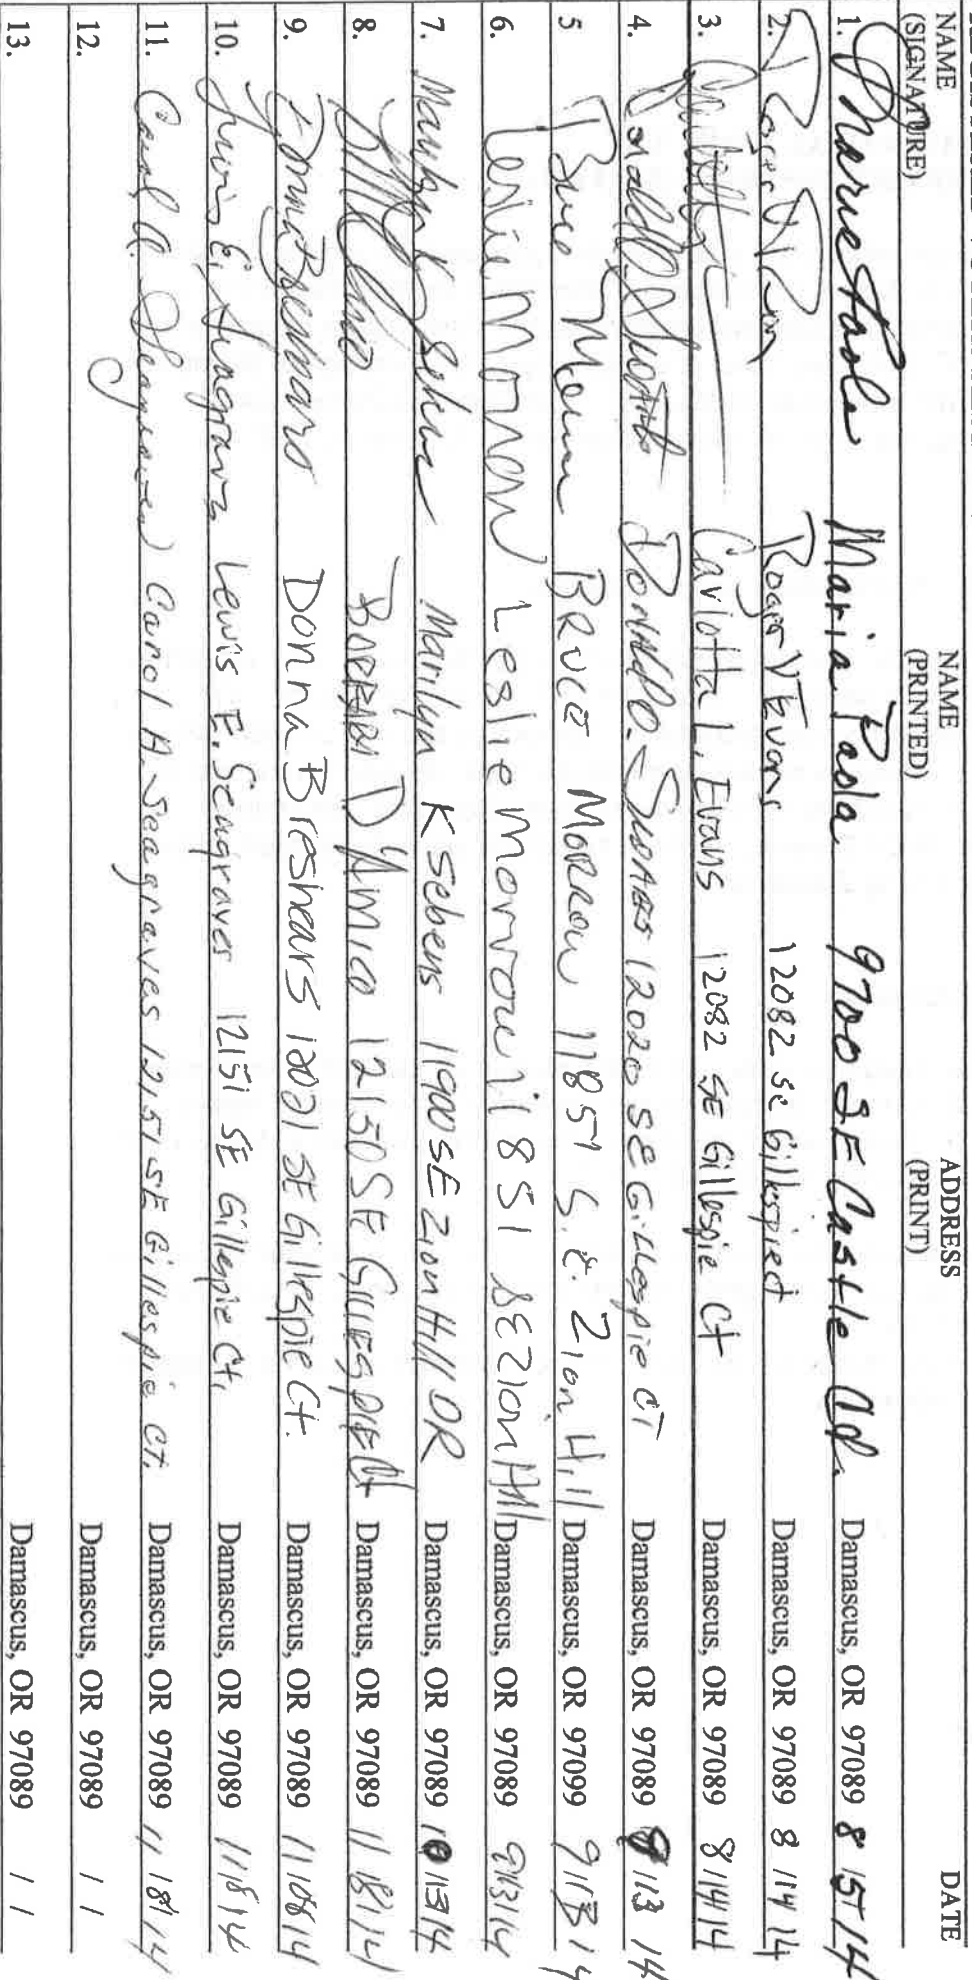 NAME (SIGNATURE) NAME (PRINTED) ADDRESS (PRINT) DATE
1. Maria Paola 9700 SE Castle Damascus, OR 97089 8 15 14
2. Roger V Evans 12082 SE Gillespie ct Damascus, OR 97089 8 /14 14
3. Carlotta L. Evans 12082 SE Gillespie Ct Damascus, OR 97089 8/14/14
4. Donald O. 12020 SE Gillespie CT Damascus, OR 97089 /13 14
5 Bruce Morrow Bruce Morrow 11851 S.E. Zion Hill Damascus, OR 97099 9/13 14
6. Leslie Morrow Leslie Morrow 11851 SE Zion Hill Damascus, OR 97089 9/13/14
7. Marilyn K Sebens Marilyn K Sebens 11900 SE Zion Hill OR Damascus, OR 97089 10/13/14
8. D'Amico 12150 SE Gillespie Ct Damascus, OR 97089 11/8/14
9. Donna Breshears Donna Breshears 12021 SE Gillespie Ct. Damascus, OR 97089 11/08/14
10. Lewis E. Seagraves Lewis E. Seagraves 12151 SE Gillepie Ct. Damascus, OR 97089 11/8/14
11. Carol A. Seagraves Carol A. Seagraves 12151 SE Gillespie Ct. Damascus, OR 97089 11/8/14
12. Damascus, OR 97089 / /
13. Damascus, OR 97089 / /